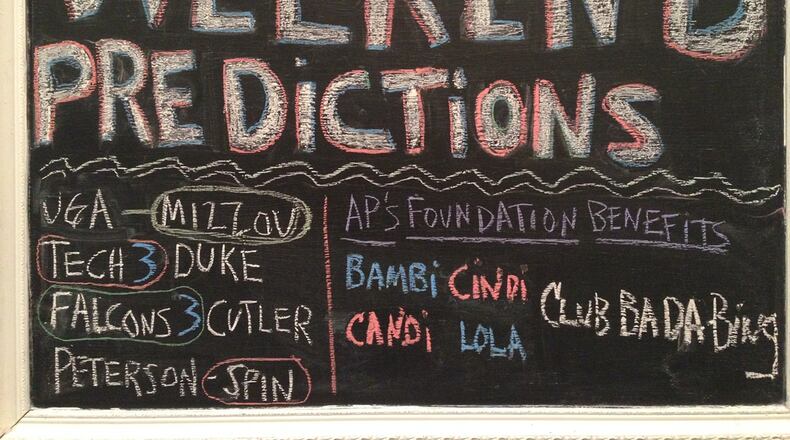 WEEKEND
PREDICTIONS
UGA - MIZZOU
TECH 3 DUKE
FALCONS 3 CUTLER
PETERSON - SPIN
AP'S FOUNDATION BENEFITS
BAMBi CiNDi
CANDi LOLA
CLUB BADA-Bing